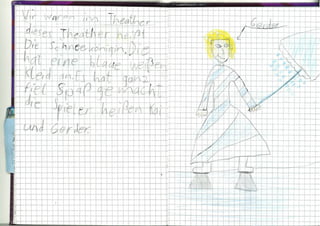 Wir waren im Theather
dieses Theather heißt
Die Schneekönigin. Die
hat eine blaue weißen
kleid an. Es hat ganz
fiel Spaß gemacht
die Spieler heißen Kai
und Gerder.
Gerder